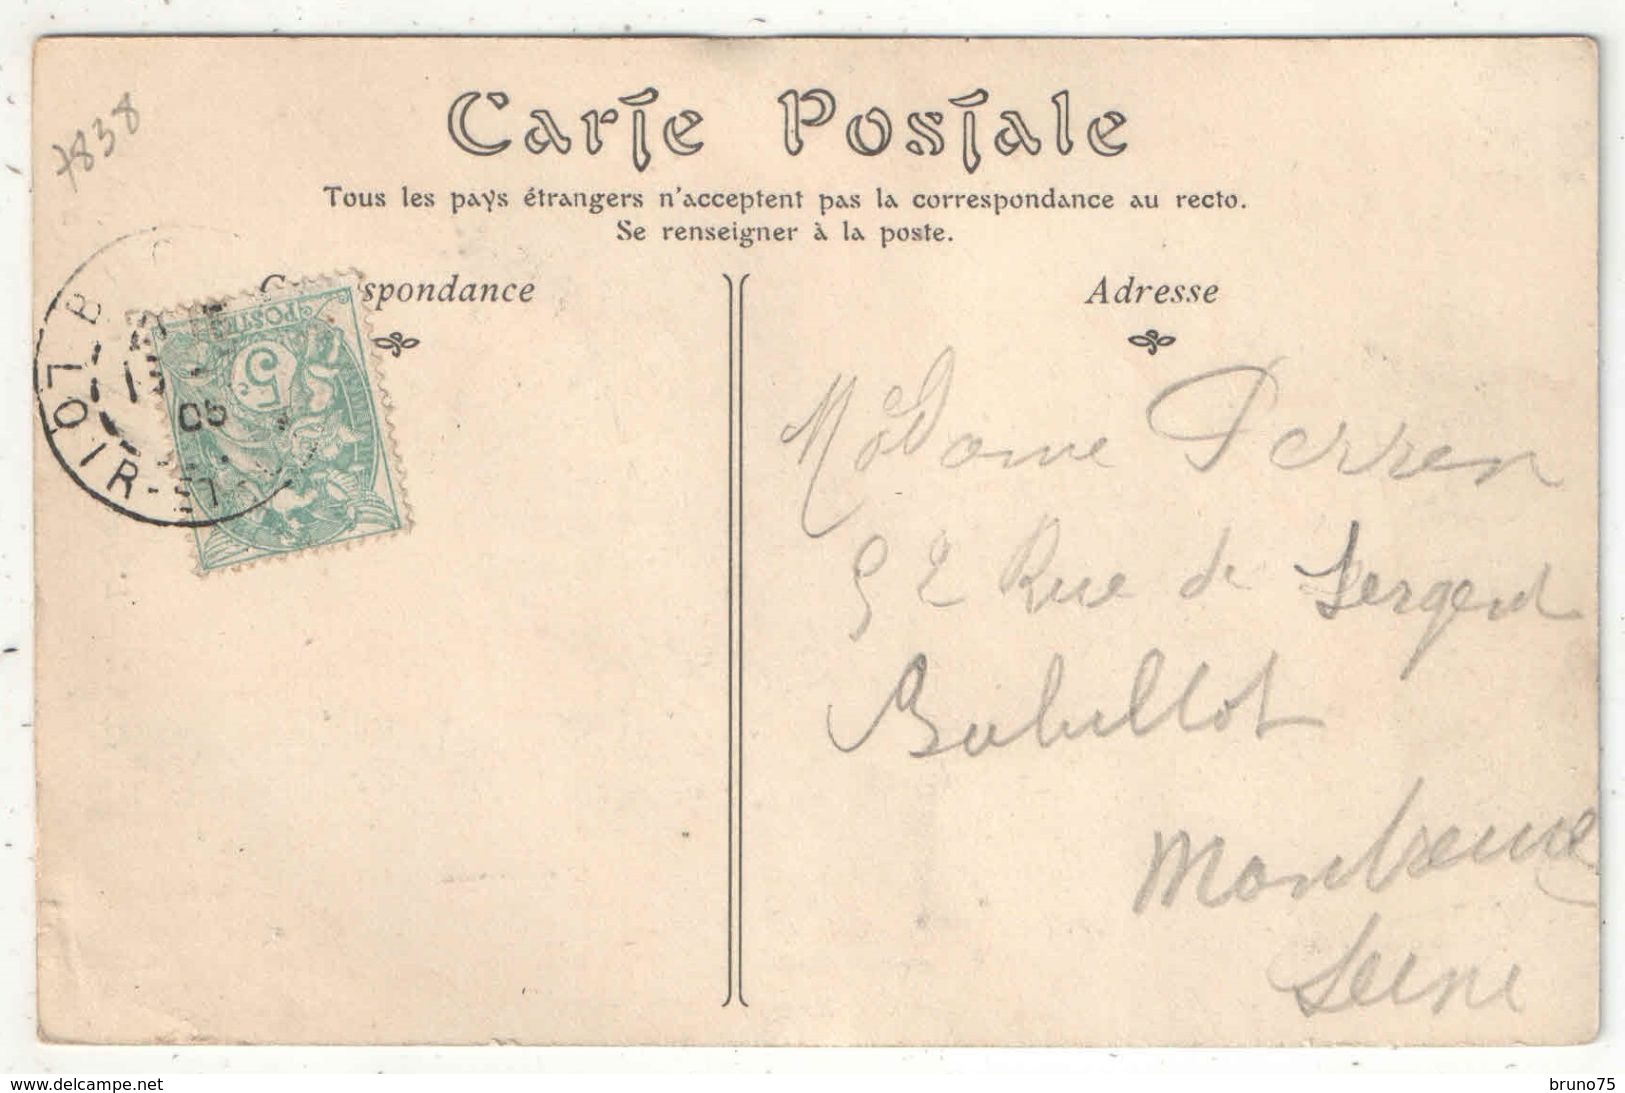 7838
Carte Postale
Tous les pays étrangers n'acceptent pas la correspondance au recto.
Se renseigner à la poste.
Correspondance
Adresse
POSTES
5 c.
B
LOIR-ET
06
Madame Perren
52 Rue de Sergent
Bobillot
Montreuil
Seine
www.delcampe.net
bruno75